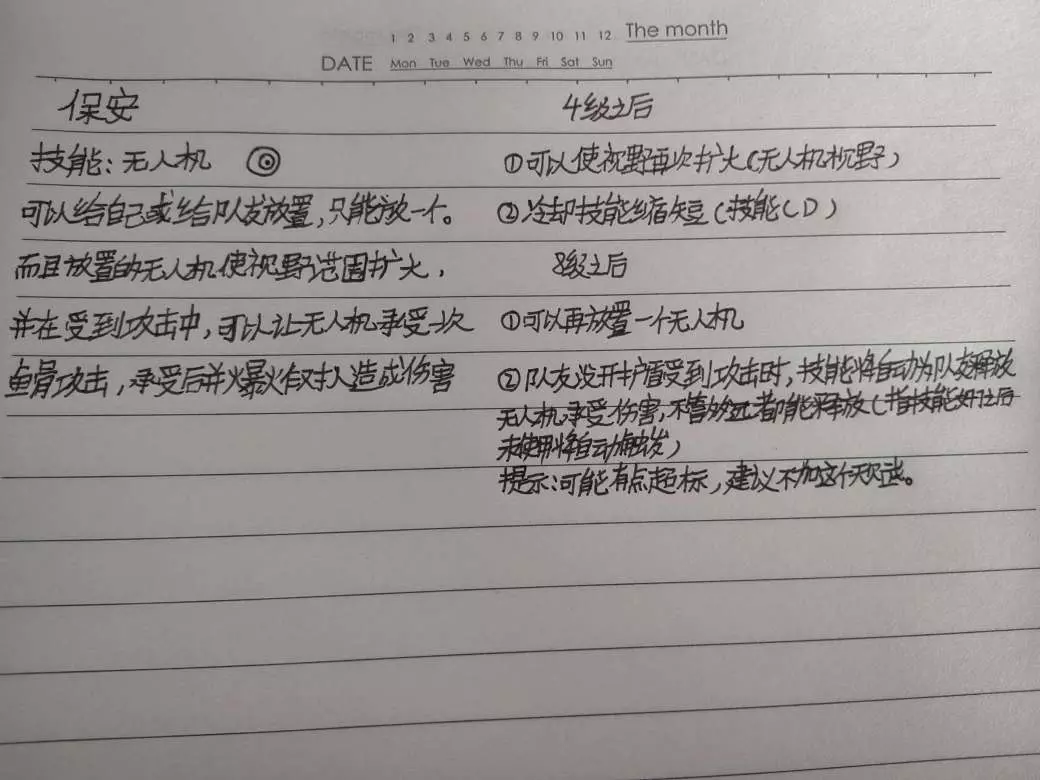 1 2 3 4 5 6 7 8 9 10 11 12 The month
DATE Mon Tue Wed Thu Fri Sat Sun
保安
技能：无人机
可以给自己或给队友放置，只能放一个。
而且放置的无人机使视野范围扩大，
并在受到攻击中，可以让无人机承受一次
鱼骨攻击，承受后并爆炸对人造成伤害
4级之后
①可以使视野再次扩大（无人机视野）
②冷却技能缩短（技能CD）
8级之后
①可以再放置一个无人机
②队友没开护盾受到攻击时，技能将自动为队友释放
无人机承受伤害，不管多远都能释放（指技能好了之后
未使用将自动触发）
提示：可能有点超标，建议不加这个天赋。